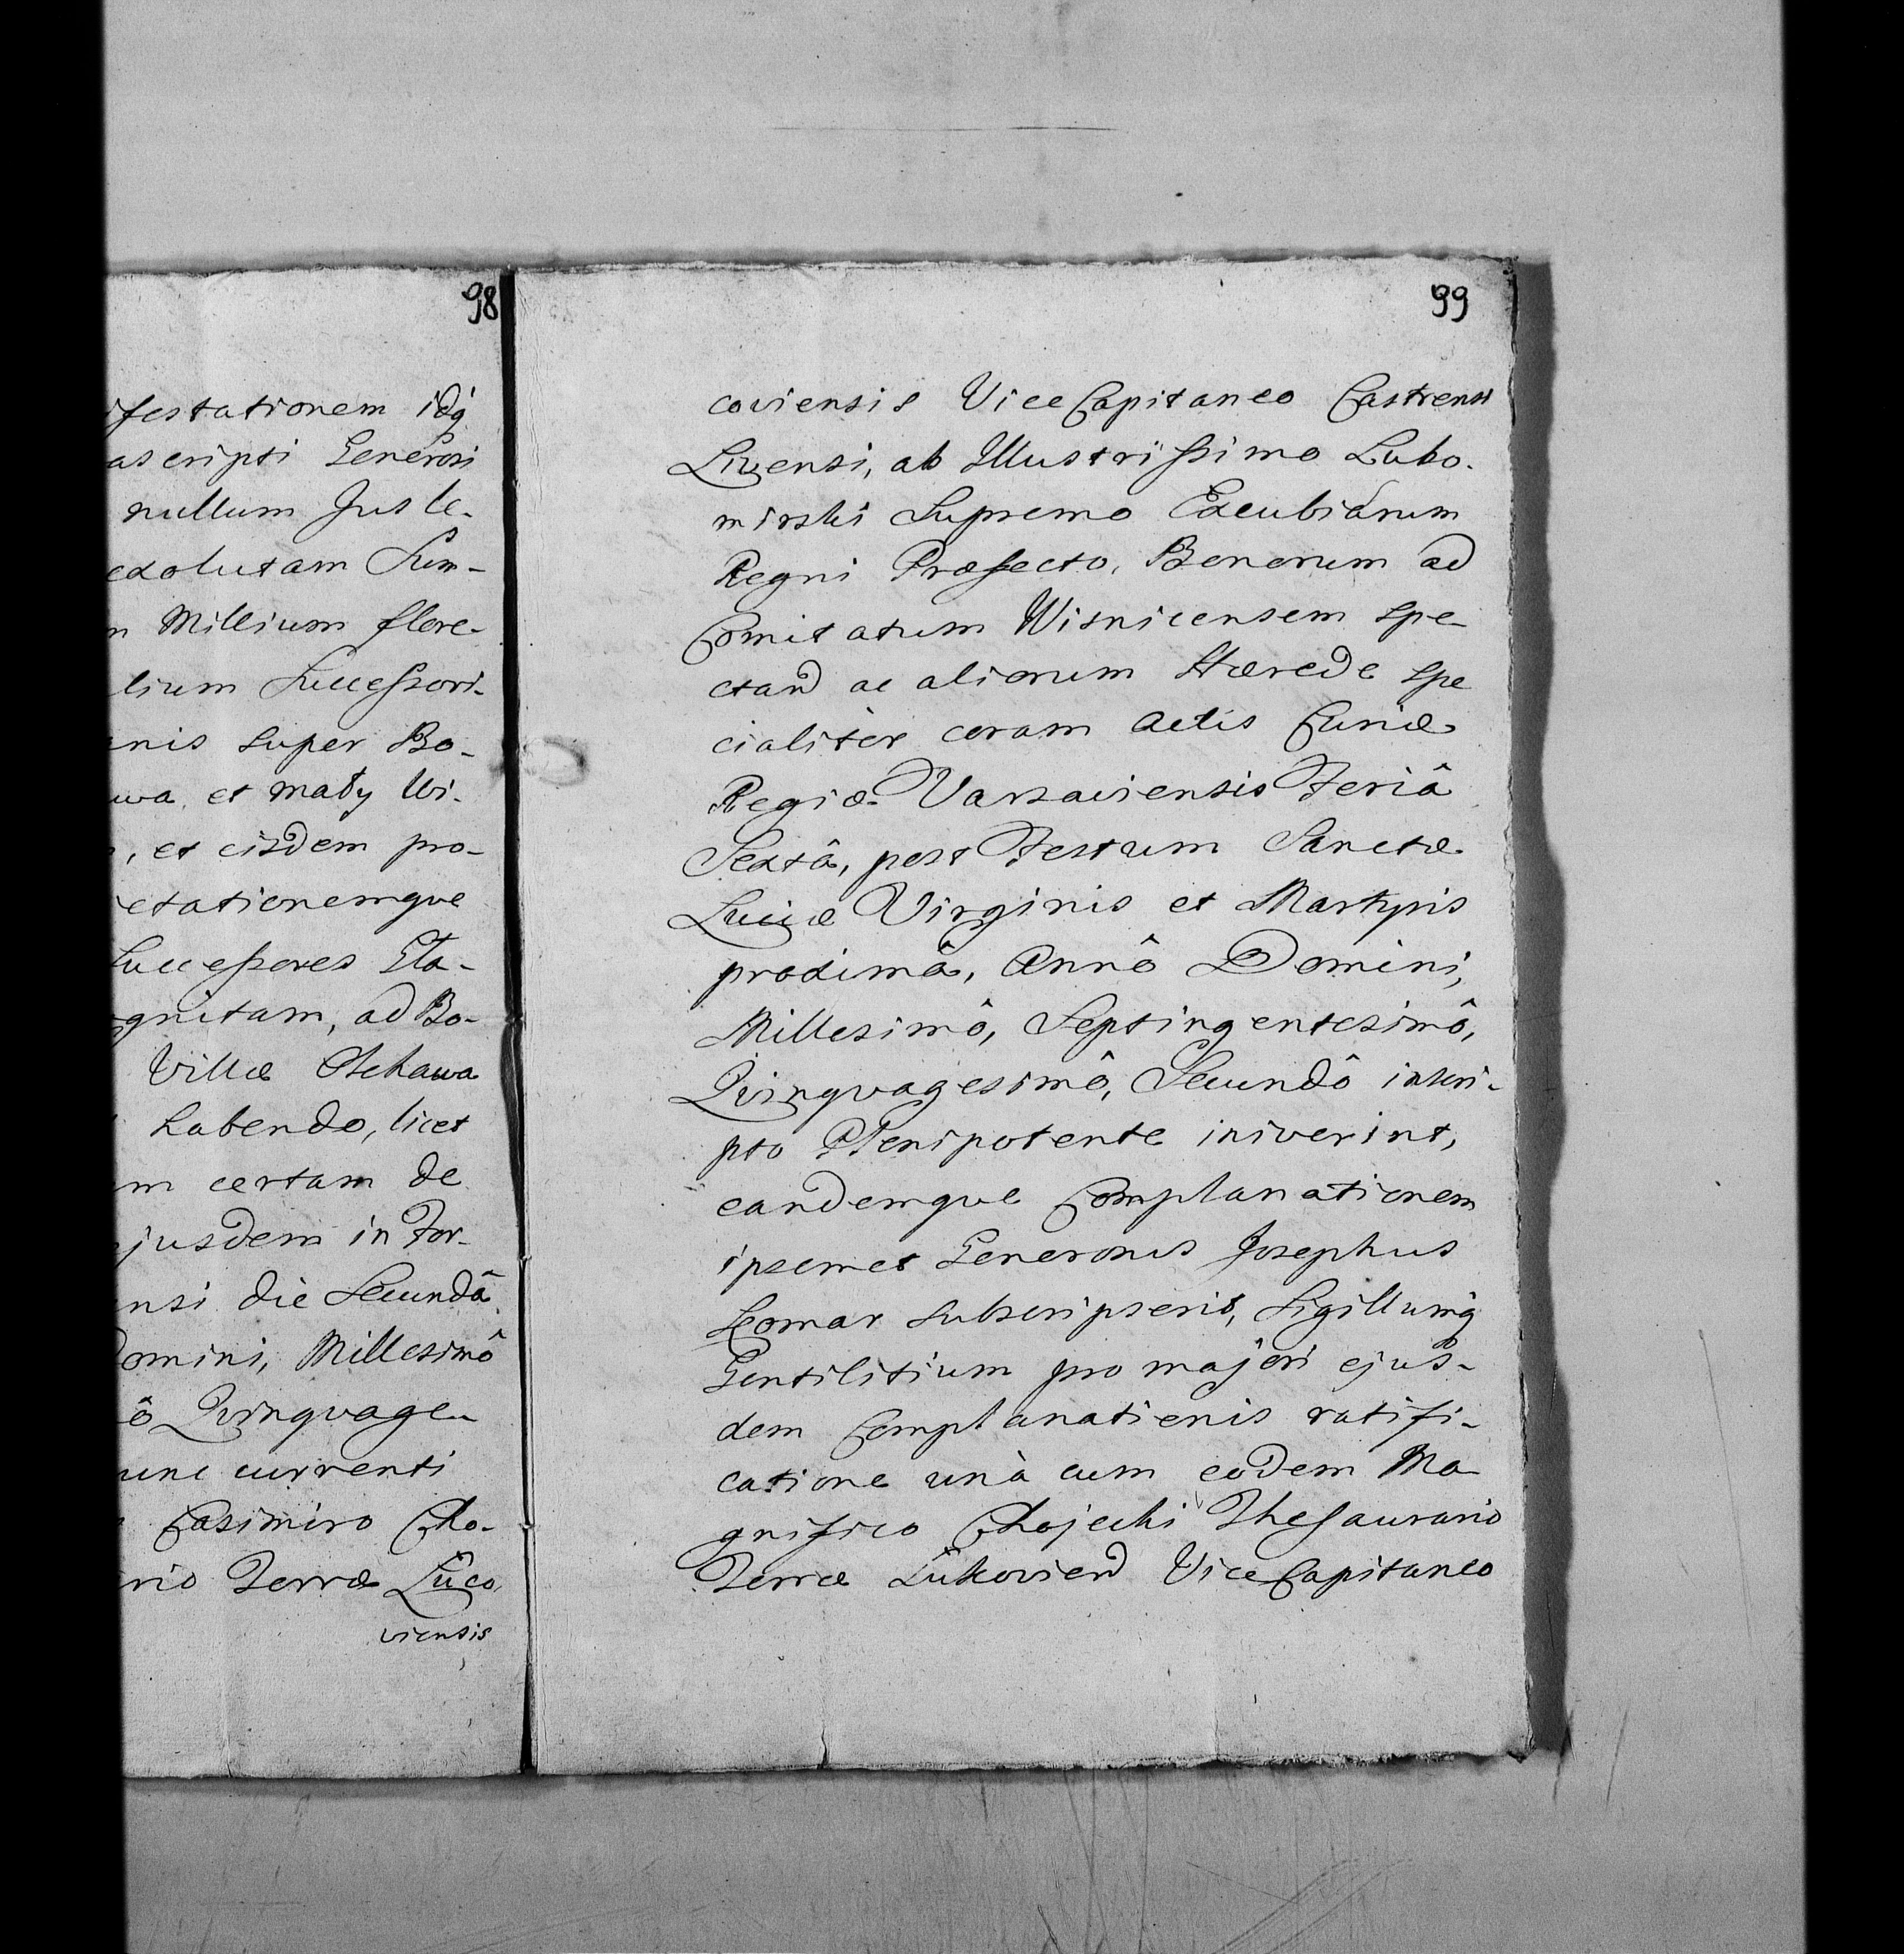 98
ifestationem idq́
ascripti Generosi
nullum Jus le-
exolutam Sum-
n Millium flore-
lium Successori-
nis super Bo-
wa, et mały Wi-
, et eisdem pro-
ctationemque
Successores Sta-
gnitam, ad Bo-
Villæ Chekawa
habendo, licet
m certam de
ejusdem in For-
nsi die Secundâ
Domini, Millesimô
ô Qvinqvage-
unc currenti
Casimiro Cho-
rio Terræ Luco
viensis
99
coviensis ViceCapitaneo Castrensi
Livensi, ab Illustrissimo Lubo-
mirski Supremo Excubiarum
Regni Præfecto, Bonorum ad
Comitatum Wisnicensem spe-
ctand ac aliorum Hærede spe
cialiter coram Actis Curiæ
Regiæ Varsaviensis Feriâ
Sextâ, post Festum Sanctæ
Luciæ Virginis et Martyris
proximâ, Annô Domini,
Millesimô, Septingentesimô,
Qvinqvagesimô, Secundô inscri-
pto Plenipotente iniverint,
eandemque Complanationem
ipsemet Generosus Josephus
Komar subscripserit, Sigillumq́
Gentilitium pro majori ejus-
dem Complanationis ratifi-
catione unà cum eodem Ma
gnifico Chojecki Thesaurario
Terræ Lukoviens ViceCapitaneo